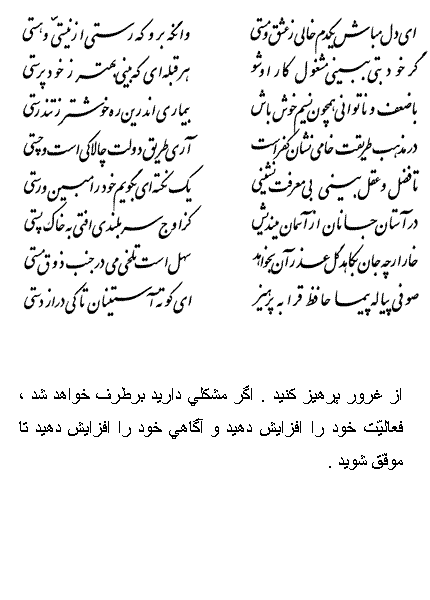 ای دل مباش یکدم خالی ز عشق و مستی وانگه برو که رستی از نیستی و هستی
گر خود بتی ببینی مشغول کار او شو هر قبله ای که بینی بهتر ز خود پرستی
با ضعف و ناتوانی همچون نسیم خوش باش بیماری اندرین ره خوشتر ز تندرستی
در مذهب طریقت خامی نشان کفر است آری طریق دولت چالاکی است و چستی
تا فضل و عقل بینی بی معرفت نشینی یک نکته ای بگویم خود را مبین و رستی
در آستان جانان از آسمان میندیش کز اوج سر بلندی افتی به خاک پستی
خار ار چه جان بکاهد گل عذر آن بخواهد سهل است تلخی می در جنب ذوق مستی
صوفی پیاله پیما حافظ قرابه پرهیز ای کوته آستینان تا کی دراز دستی
از غرور پرهيز كنيد . اگر مشكلي داريد برطرف خواهد شد ،
فعاليّت خود را افزايش دهيد و آگاهي خود را افزايش دهيد تا
موفّق شويد .